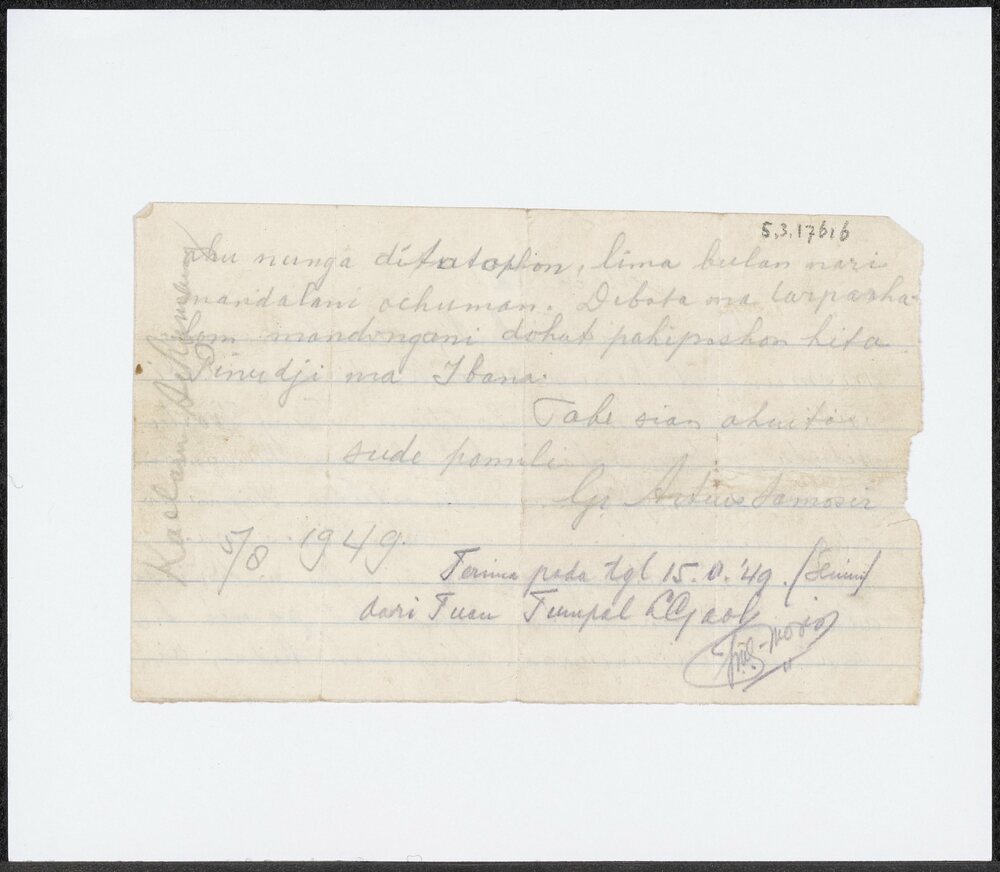 5.3.17616
Ahu nunga ditatophon, lima bulan nari
mandalani ochuman. Debata ma tarpasha-
lom mandongani dohot pahipashon hita
Pinudji ma Ibana.
Tabe sian ahuito
sude pomuli
Gr. Artius Samosir
5/8 1949.
Terima pada tgl 15. '49. (Senin)
dari Tuan Tumpal